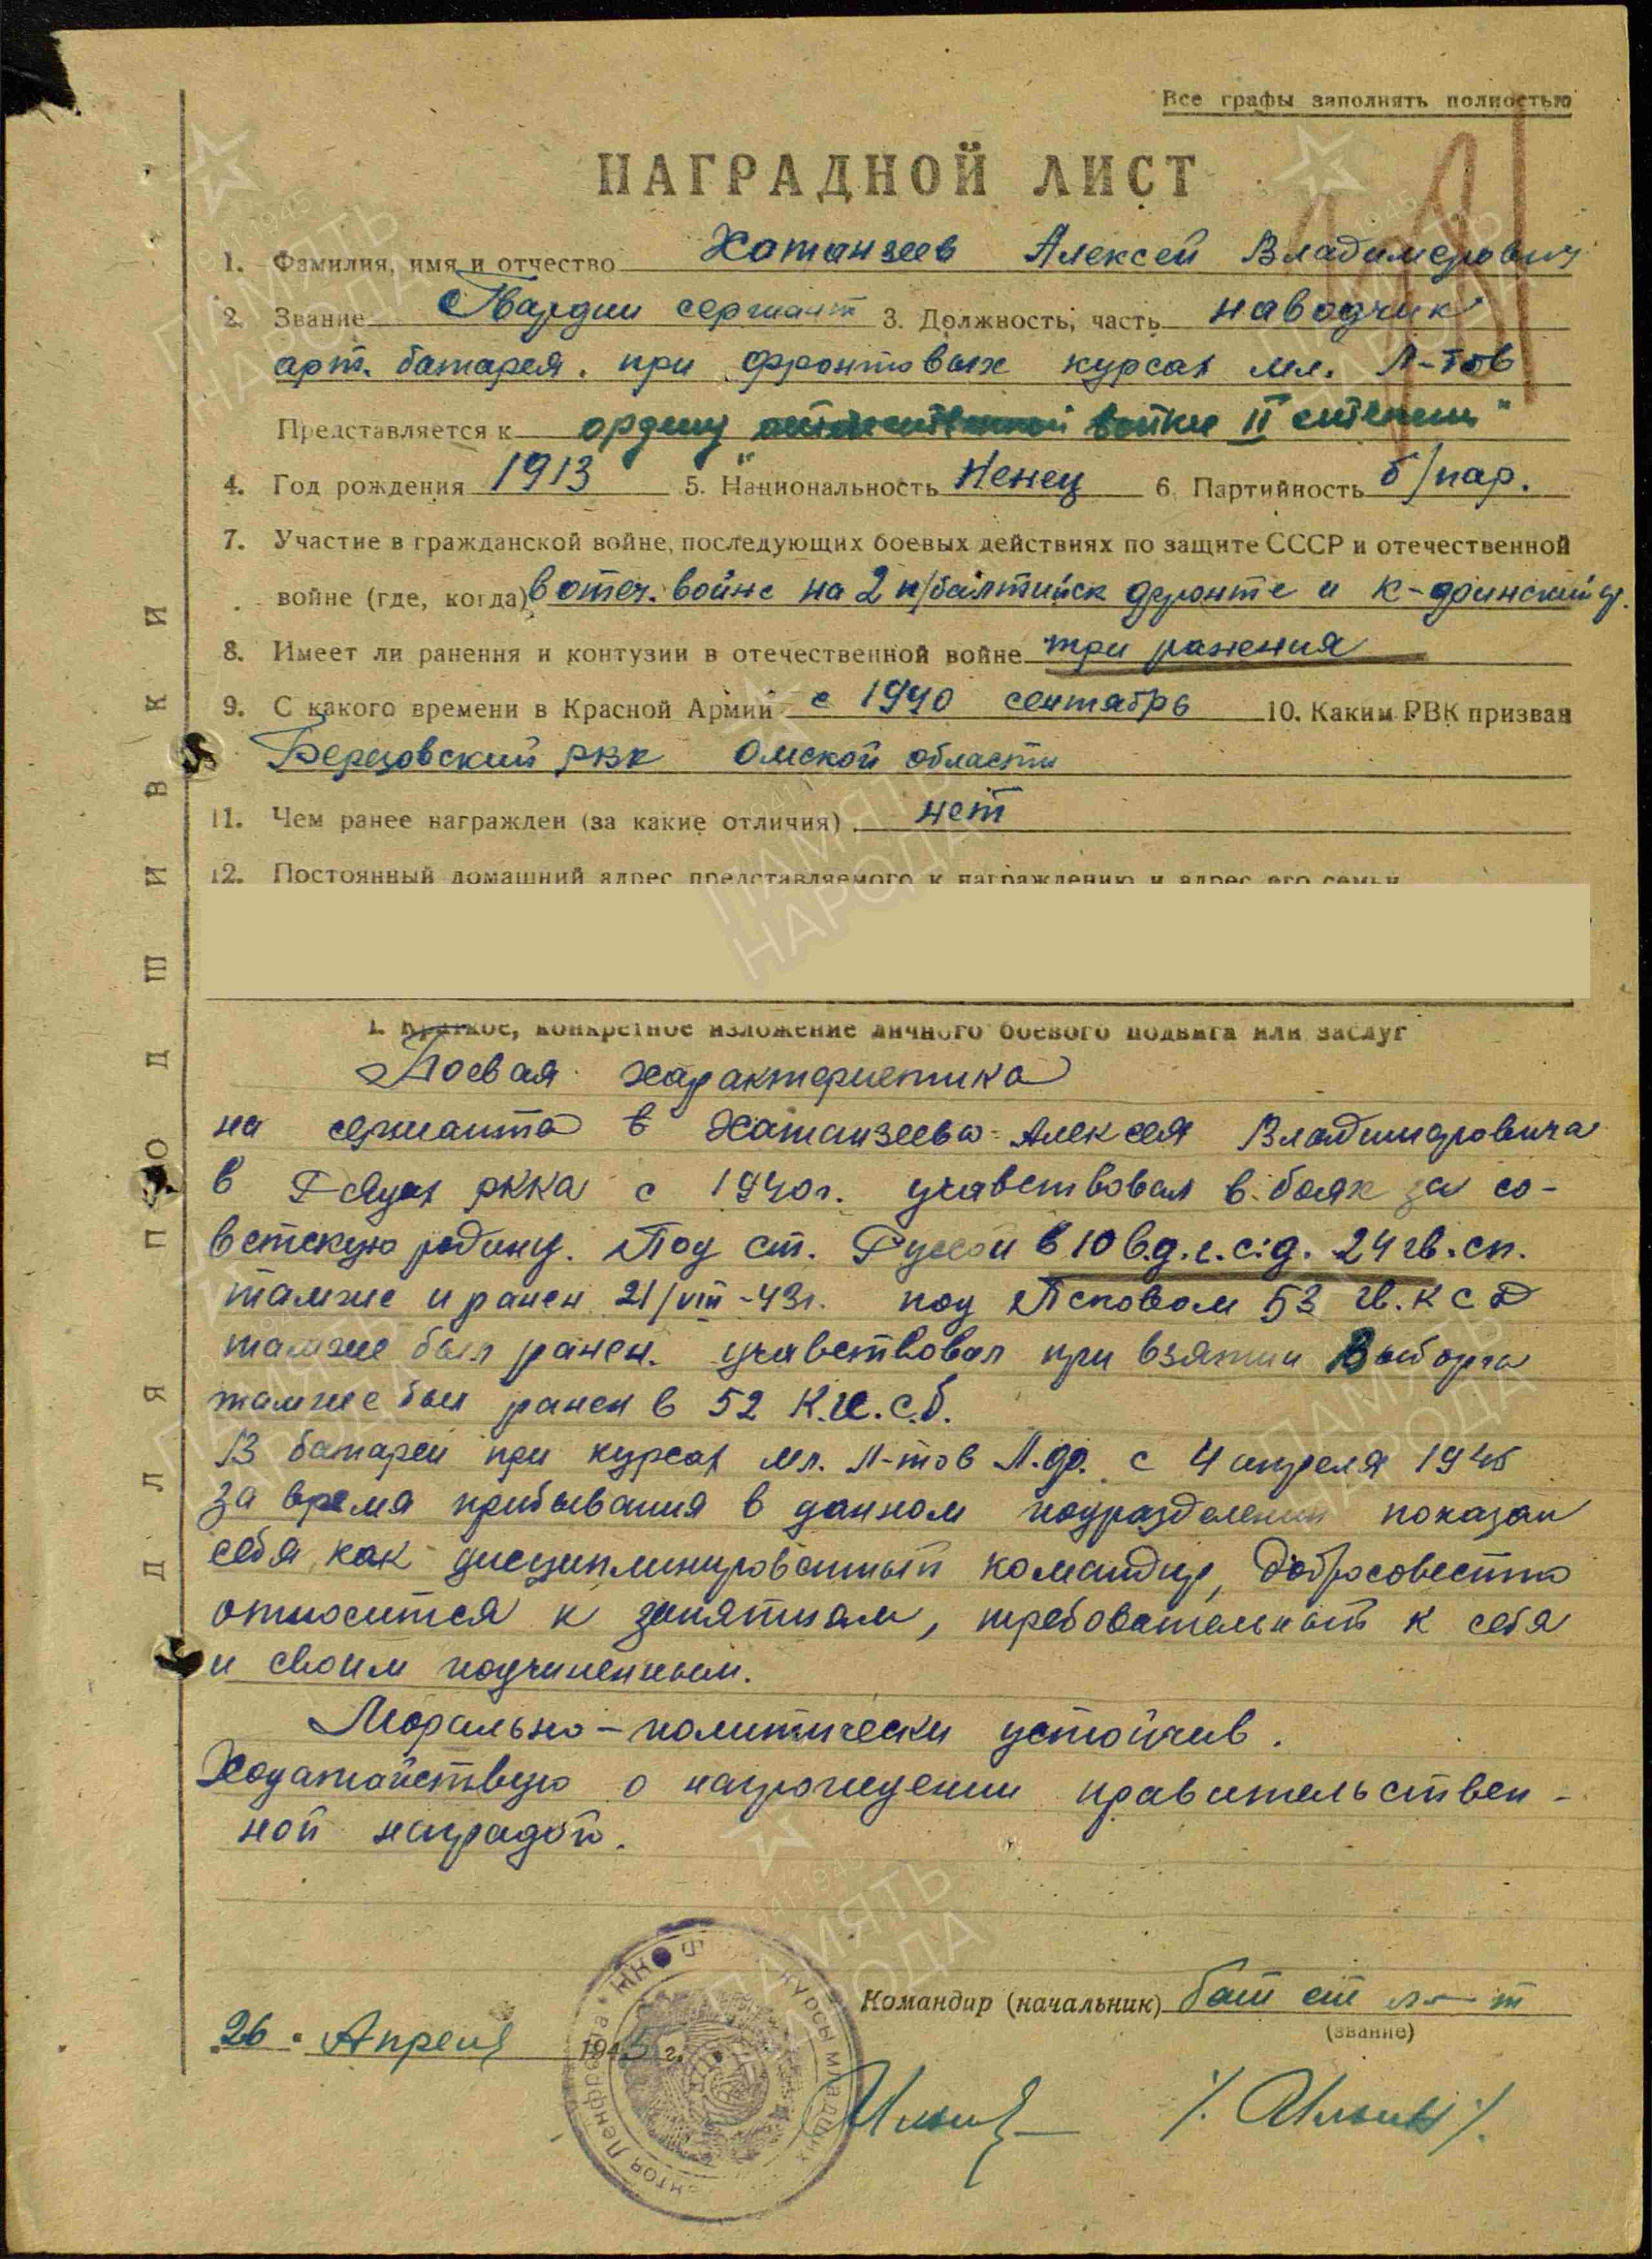 Все графы заполнять полностью
НАГРАДНОЙ ЛИСТ
1. Фамилия, имя и отчество Хатанзеев Алексей Владимерович
2. Звание Гвардии сержант 3. Должность, часть наводчик
арт. батарея. при фронтовых курсах мл. Л-тов
Представляется к ордену отечественной войны II степени"
4. Год рождения 1913 5. Национальность Ненец 6. Партийность б/пар.
7. Участие в гражданской войне, последующих боевых действиях по защите СССР и отечественной
войне (где, когда) в отеч. войне на 2 п/балтийск фронте и к-финский ф.
8. Имеет ли ранения и контузии в отечественной войне три ранения
9. С какого времени в Красной Армии с 1940 сентябрь 10. Каким РВК призван
Березовский РВК Омской области
11. Чем ранее награжден (за какие отличия) нет
12. Постоянный домашний адрес представляемого к награждению и адрес его семьи
1. Краткое, конкретное изложение личного боевого подвига или заслуг
Боевая характеристика
на сержанта Хатанзеева Алексея Владимировича
в РККА с 1940г. учавствовал в боях за со-
ветскую родину. Под ст. Руссой в 10 в.д.г.с.д. 24 гв.сп.
тамже и ранен 21/VIII-43г. под Псковом 53 гв. К С Д
тамже был ранен. учавствовал при взятии Выборга
тамже был ранен в 52 К.И.С.б.
В батареи при курсах мл. Л-тов Л.ф. с 4 апреля 1945
за время прибывания в данном подразделении показал
себя как дисциплинированный командир, добросовестно
относится к занятиям, требовательный к себя
и своим подчиненным.
Морально-политически устойчив.
Ходатайствую о награждении правительствен-
ной наградой.
Командир (начальник) бат ст л-т
(звание)
26 Апреля 1945 г.
/. Ильин /.
ДЛЯ ПОДШИВКИ
курсы младших
Ленфронта
НКО
ПАМЯТЬ НАРОДА
1941 1945